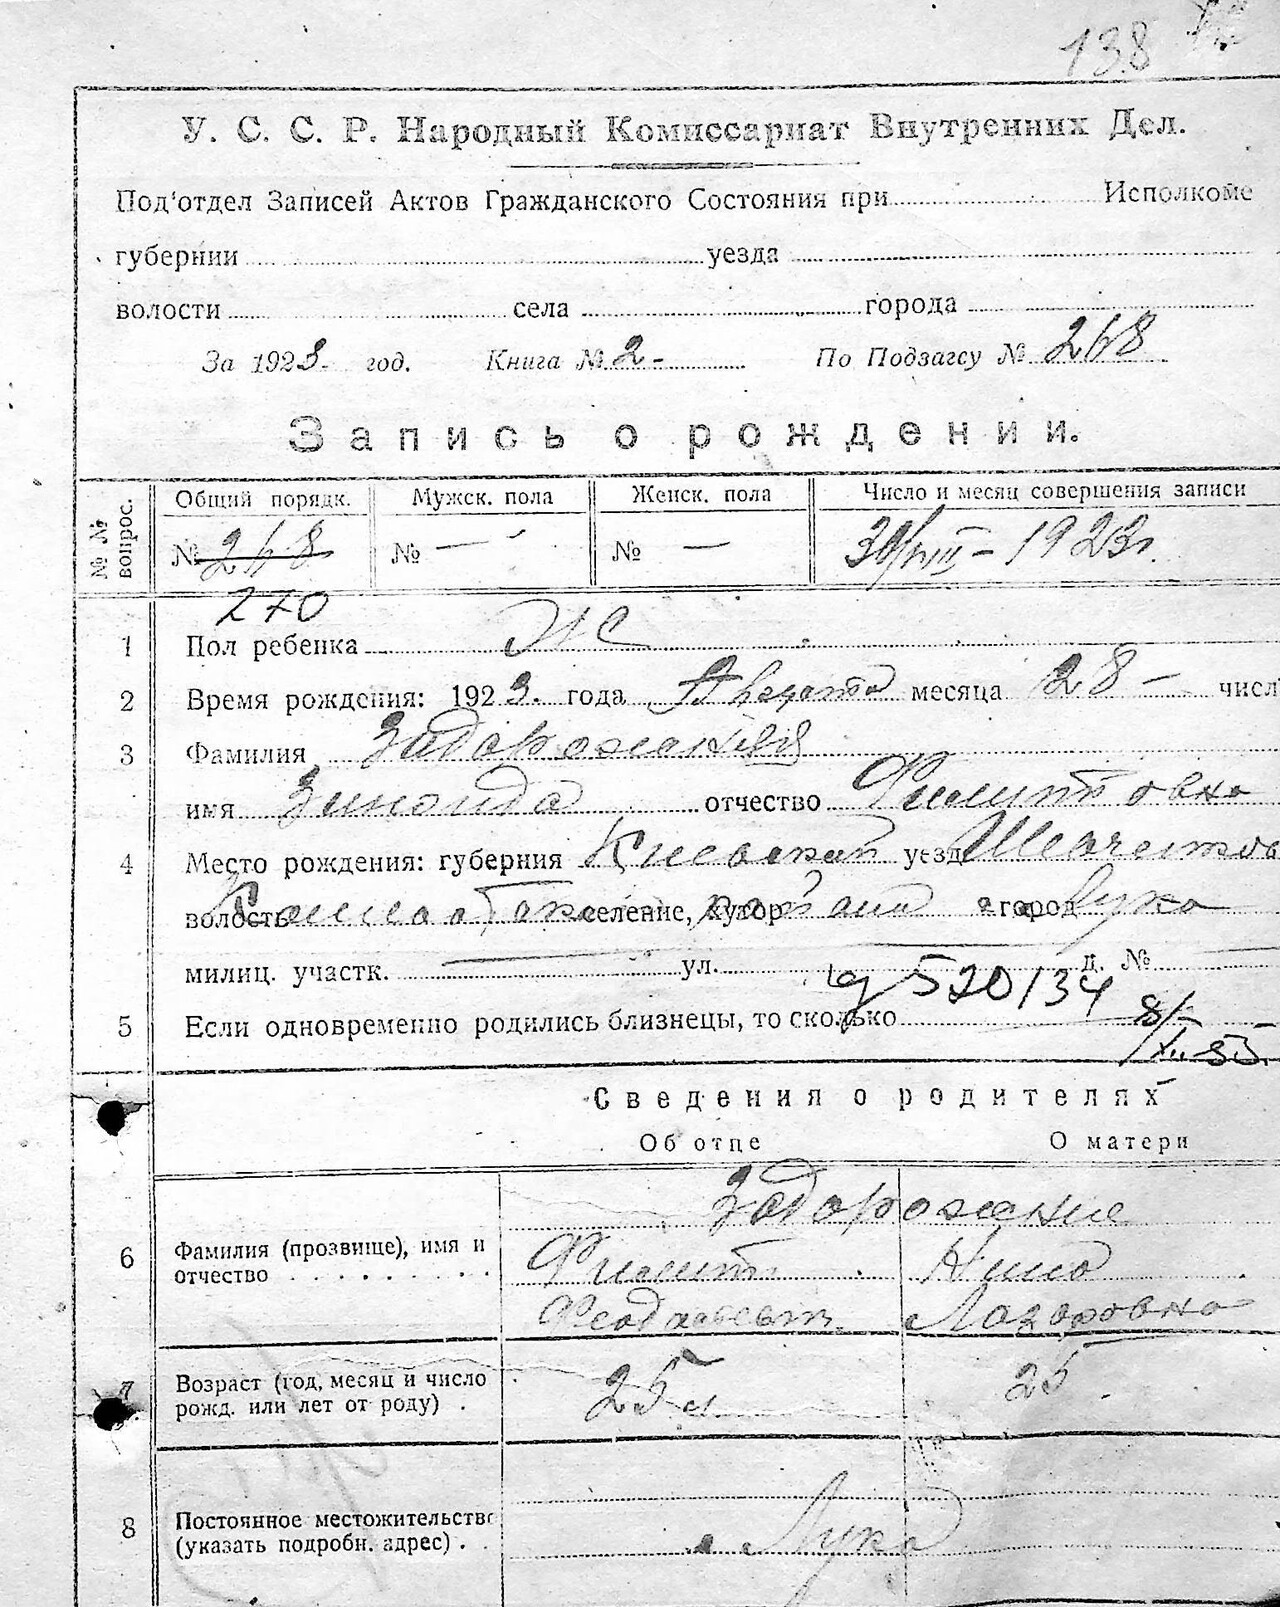 138
У. С. С. Р. Народный Комиссариат Внутренних Дел.
Под'отдел Записей Актов Гражданского Состояния при Исполкоме
губернии уезда
волости села города
За 1923 год. Книга № 2 - По Подзагсу № 268
Запись о рождении.
№ № вопрос. Общий порядк. Мужск. пола Женск. пола Число и месяц совершения записи
№ 268 № — № — 30/VIII – 1923 г.
270
1 Пол ребенка Ж
2 Время рождения: 1923. года Августа месяца 28 – числ
3 Фамилия Задорожняя
имя Зиноида отчество Филиповна
4 Место рождения: губерния Киевской уезд Шевченков
волость селение, хутор город Лука
милиц. участк. ул. д. №
520134
5 Если одновременно родились близнецы, то сколько
8/XII 85.
Сведения о родителях
Об отце О матери
Задорожние
6 Фамилия (прозвище), имя и отчество Филип Нина
Лазоровна
7 Возраст (год, месяц и число рожд. или лет от роду) . 25 л. 25
8 Постоянное местожительство (указать подробн. адрес) . Лука